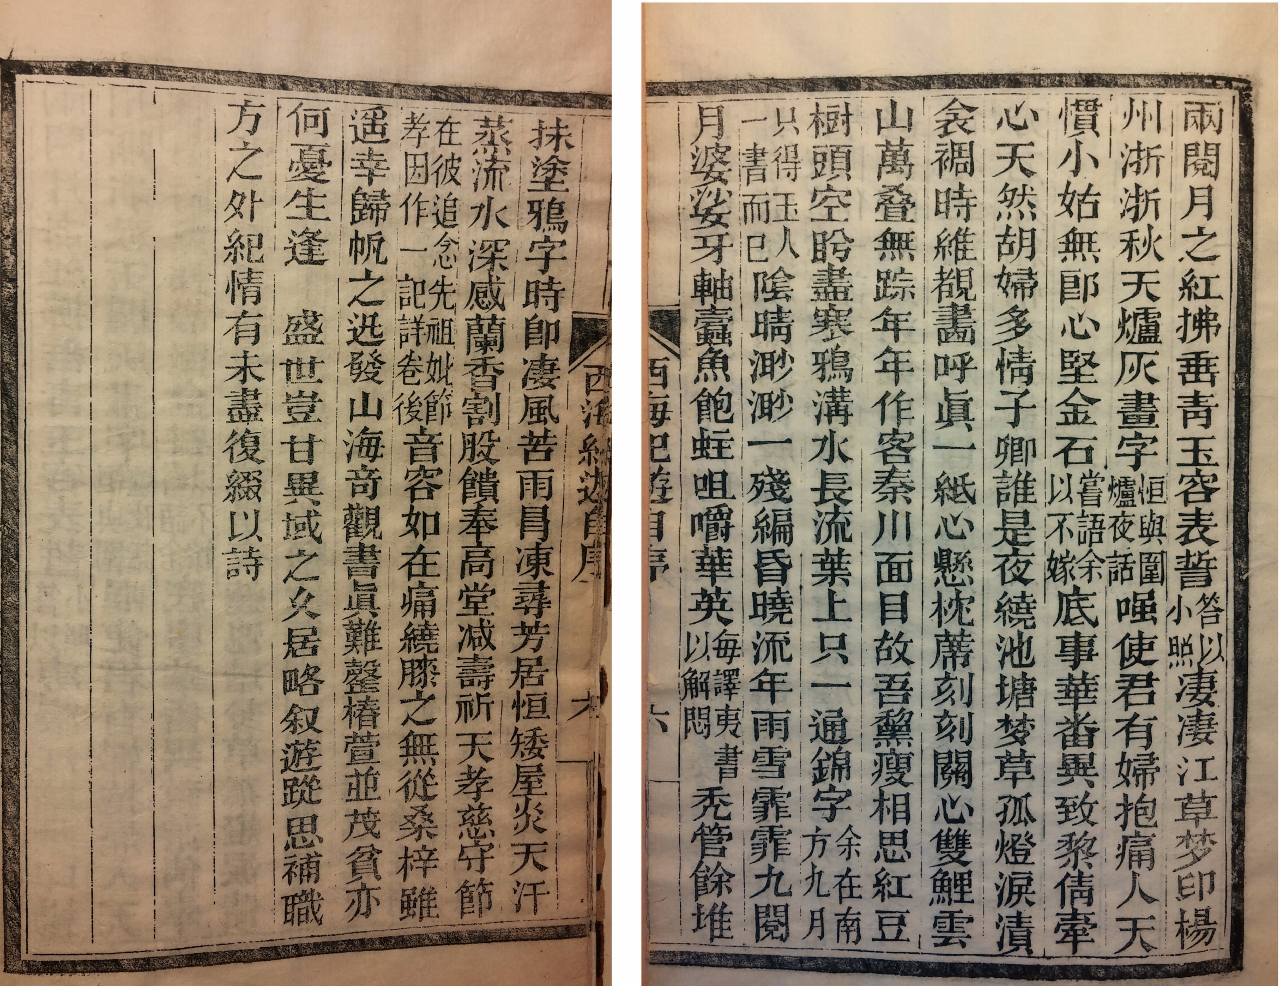 兩閱月之紅拂垂青玉容表誓答以小照凄凄江草梦印楊
州淅淅秋天爐灰畫字恒與圍爐夜話嗤使君有婦抱痛人天
慣小姑無郎心堅金石嘗語余以不嫁底事華畨異致黎倩牽
心天然胡婦多情子卿誰是夜繞池塘梦草孤燈淚漬
衾裯時維覩畵呼眞一紙心懸枕蓆刻刻關心雙鯉雲
山萬叠無踪年年作客秦川面目故吾黧瘦相思紅豆
樹頭空盻盡寒鴉溝水長流葉上只一通錦字余在南方九月
只得玉人一書而已陰晴渺渺一殘編昏曉流年雨雪霏霏九閱
月婆娑牙軸蠧魚飽蛀咀嚼華英每譯夷書以解悶禿管餘堆
西海紀遊自序
六
西海紀遊自序
六
抹塗鴉字時卽凄風苦雨冐凍尋芳居恒矮屋炎天汗
蒸流水深感蘭香割股饋奉高堂减壽祈天孝慈守節
在彼追念先祖妣節孝因作一記詳卷後音容如在痛繞膝之無從桑梓雖
遥幸歸帆之迅發山海竒觀書眞難罄椿萱並茂貧亦
何憂生逢　盛世豈甘異域之久居略叙遊踨思補職
方之外紀情有未盡復綴以詩